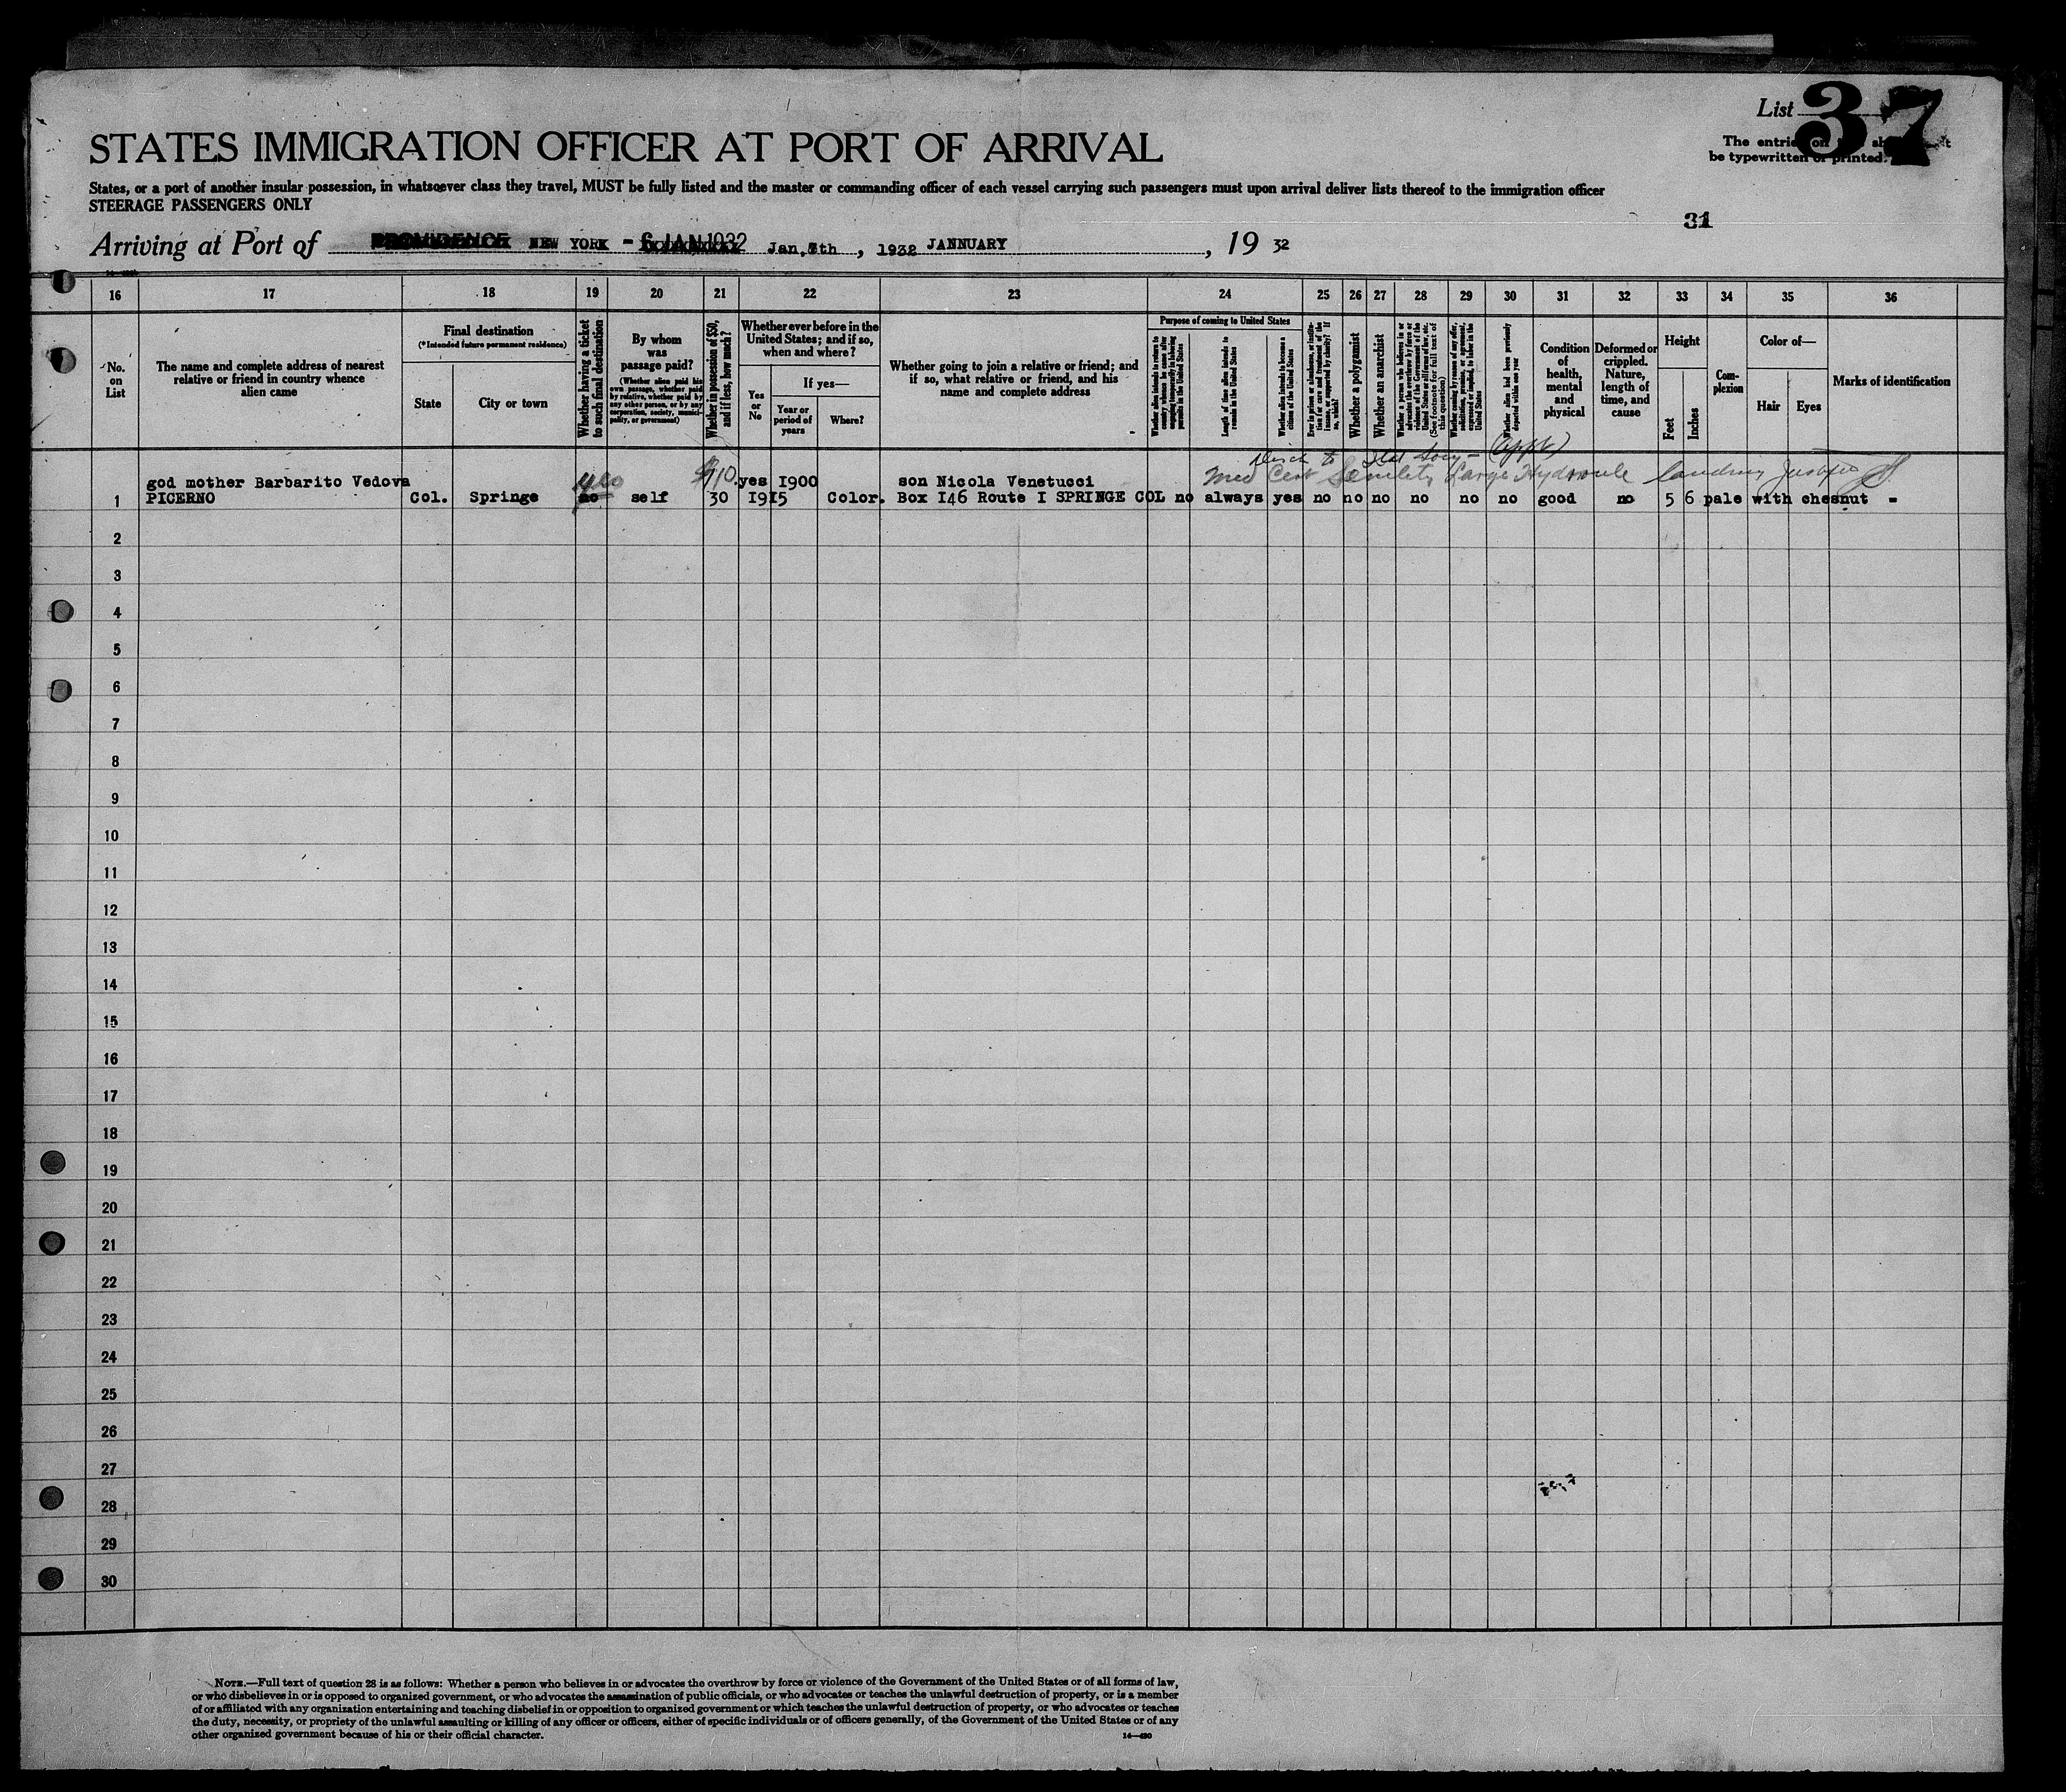 List 37
STATES IMMIGRATION OFFICER AT PORT OF ARRIVAL
The entries on sh t
be typewritten or printed.
States, or a port of another insular possession, in whatsoever class they travel, MUST be fully listed and the master or commanding officer of each vessel carrying such passengers must upon arrival deliver lists thereof to the immigration officer
STEERAGE PASSENGERS ONLY
31
Arriving at Port of PROVIDENCE NEW YORK - 6 JAN 1932 Jan, 7th , 1932 JANNUARY , 19 32
16 17 18 19 20 21 22 23 24 25 26 27 28 29 30 31 32 33 34 35 36
No. on List
The name and complete address of nearest relative or friend in country whence alien came
Final destination
(*Intended future permanent residence)
State
City or town
Whether having a ticket to such final destination
By whom was passage paid?
(Whether alien paid his own passage, whether paid by relative, whether paid by any other person, or by any corporation, society, municipality, or government)
Whether in possession of $50, and if less, how much?
Whether ever before in the United States; and if so, when and where?
Yes or No
If yes—
Year or period of years
Where?
Whether going to join a relative or friend; and if so, what relative or friend, and his name and complete address
Purpose of coming to United States
Whether alien intends to return to country whence he came after engaging temporarily in laboring pursuits in the United States
Length of time alien intends to remain in the United States
Whether alien intends to become a citizen of the United States
Ever in prison or almshouse, or institution for care and treatment of the insane, or supported by charity? If so, which?
Whether a polygamist
Whether an anarchist
Whether a person who believes in or advocates the overthrow by force or violence of the Government of the United States or all forms of law, etc. (See footnote for full text of this question)
Whether coming by reason of any offer, solicitation, promise, or agreement, expressed or implied, to labor in the United States
Whether alien had been previously deported within one year
Condition of health, mental and physical
Deformed or crippled. Nature, length of time, and cause
Height
Feet
Inches
Complexion
Color of—
Hair
Eyes
Marks of identification
Disch to (appt)
god mother Barbarito Vedova yes $110. yes 1900 son Nicola Venetucci Med Cert Senility Large Hydrocele landing
1 PICERNO Col. Springe no self 30 1915 Color. Box I46 Route I SPRINGE COL no always yes no no no no no no good no 5 6 pale with chesnut -
2
3
4
5
6
7
8
9
10
11
12
13
14
15
16
17
18
19
20
21
22
23
24
25
26
27
28
29
30
NOTE.—Full text of question 28 is as follows: Whether a person who believes in or advocates the overthrow by force or violence of the Government of the United States or of all forms of law,
or who disbelieves in or is opposed to organized government, or who advocates the assassination of public officials, or who advocates or teaches the unlawful destruction of property, or is a member
of or affiliated with any organization entertaining and teaching disbelief in or opposition to organized government or which teaches the unlawful destruction of property, or who advocates or teaches
the duty, necessity, or propriety of the unlawful assaulting or killing of any officer or officers, either of specific individuals or of officers generally, of the Government of the United States or of any
other organized government because of his or their official character.
14—430